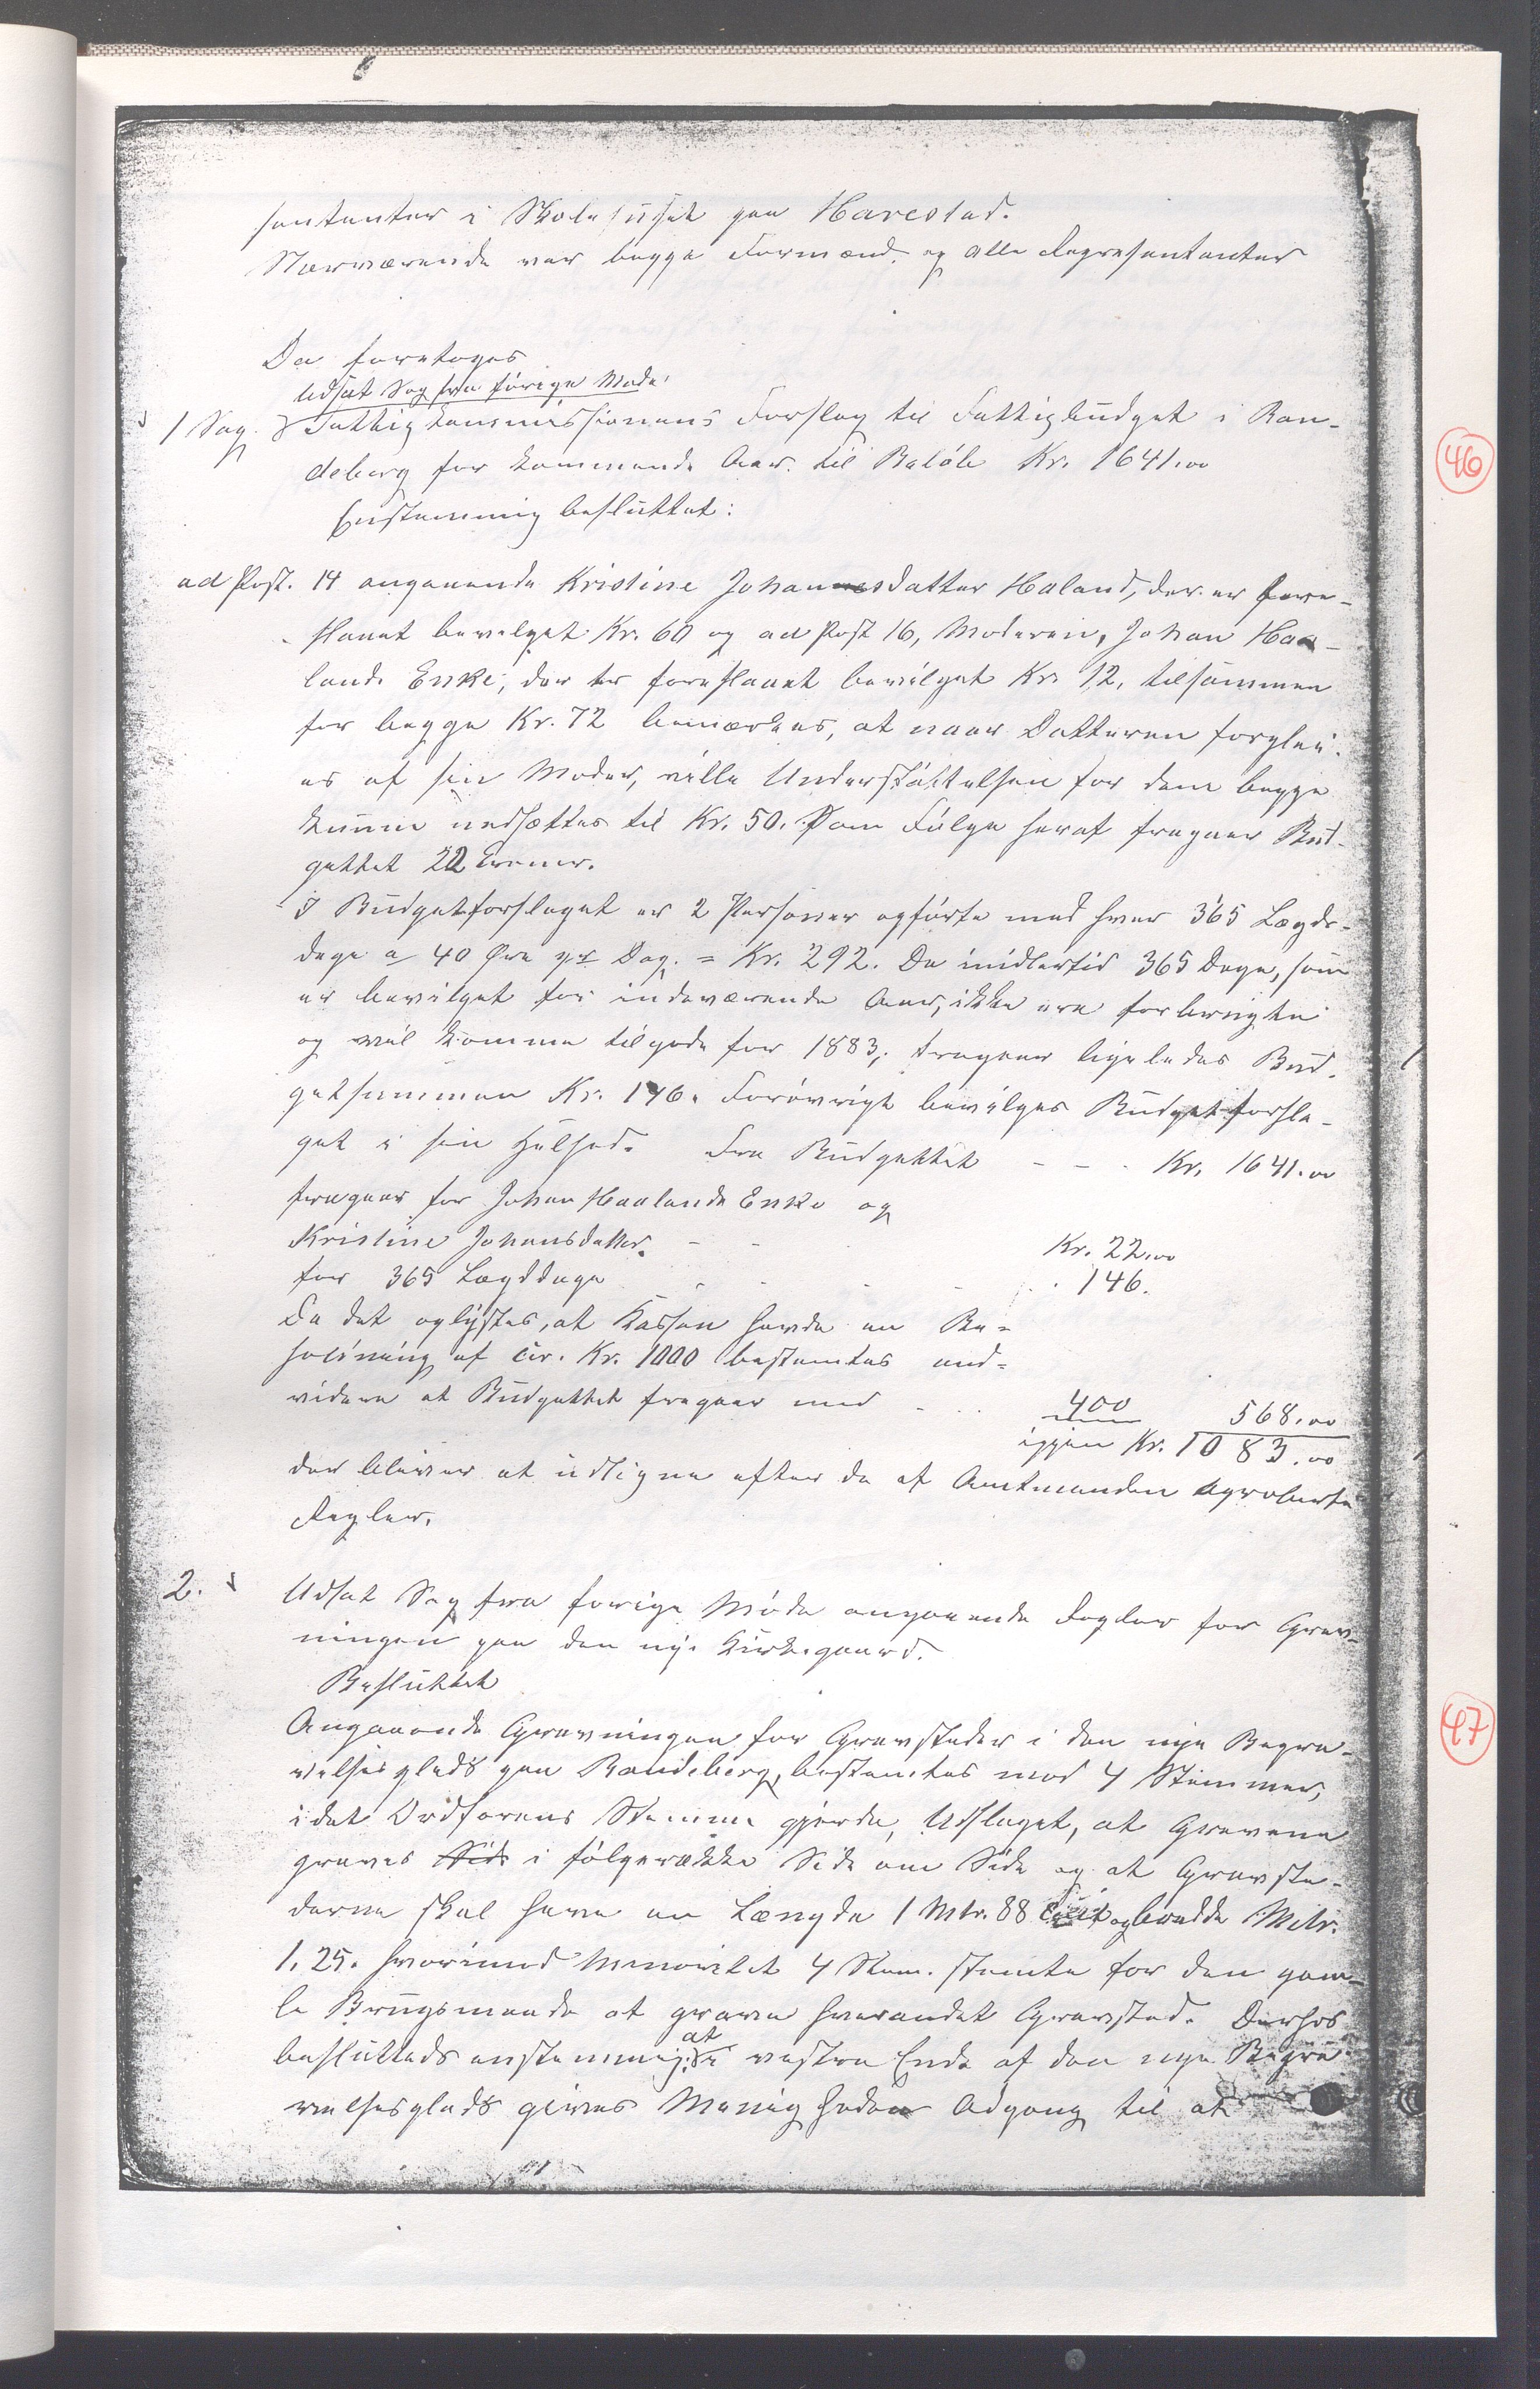 sentanter i Skolehuset paa Harestad.
Nærværende var begge Formænd og alle Repræsentanter
Da foretoges
Udsat Sag fra forige Møde.
1 Sag. Fattigkommissionens Forslag til Fattigbudget i Ran-
deberg for kommende Aar til Beløb Kr. 1641.00
Enstemmig besluttet:
ad Post. 14 angaaende Kristine Johannesdatter Haland, der er fore-
slaaet bevilget Kr. 60 og ad Post 16, Moderen, Johan Haa-
lands Enke, der er foreslaaet bevilget Kr. 12, tilsammen
for begge Kr. 72 bemærkes, at naar Datteren forplei-
es af sin Moder, ville Understøttelsen for dem begge
kunne nedsættes til Kr. 50. Som Følge heraf fragaar Bud-
gettet 22 Kroner.
I Budgetforslaget er 2 Personer opførte med hver 365 Lægds-
dage a 40 Øre pr Dag. = Kr. 292. Da imidlertid 365 Dage, som
er bevilget for indeværende Aar, ikke ere forbrugte
og vil komme tilgode for 1883, fragaar ligeledes Bud-
getsummen Kr. 146. Forøvrigt bevilges Budgetforsla-
get i sin Helhed. Fra Budgettet - - - Kr. 1641.00
fragaar for Johan Haalands Enke og
Kristine Johansdatter - - Kr. 22.00
for 365 Lægddage - - - - 146.
Da det oplystes, at Kassen havde en Be-
holdning af cir. Kr. 1000 bestemtes end-
videre at Budgettet fragaar med - - - 400 568.00
igjen Kr. 1083.00
der bliver at udligne efter de af Amtmanden aproberte
Regler.
2. Udsat Sag fra forige Møde angaaende Regler for Grav-
ningen paa den nye Kirkegaard.
Besluttet
Angaaende Gravningen for Gravsteder i den nye Begra-
velsesplads paa Randeberg, bestemtes mod 4 Stemmer,
idet Ordførens Stemme gjorde Udslaget, at Gravene
graves Side i følgerække Side om Side og at Gravste-
derne skal have en Længde 1 Mtr. 88 og bredde Metr.
1.25. hvorimod Minoritet 4 Stem. stemte for den gam-
le Brugsmaade at grave hverandet Gravsted. Derhos
beslutteds enstemmig: at i vestre Ende af den nye Begra-
velsesplads gives Menigheden Adgang til at
46
47